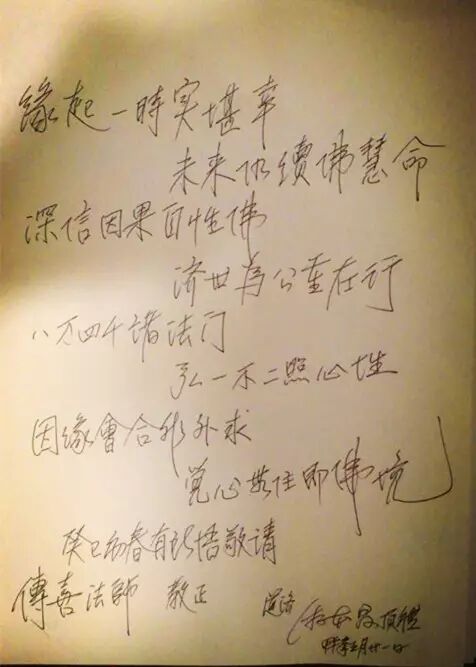 緣起一時实堪幸
未来仍續佛慧命
深信因果自性佛
济世為公重在行
八万四千諸法门
弘一不二照心性
因缘會合非外求
觉心安住即佛境
癸巳初春有所悟敬请
傳喜法師 教正
顶禮